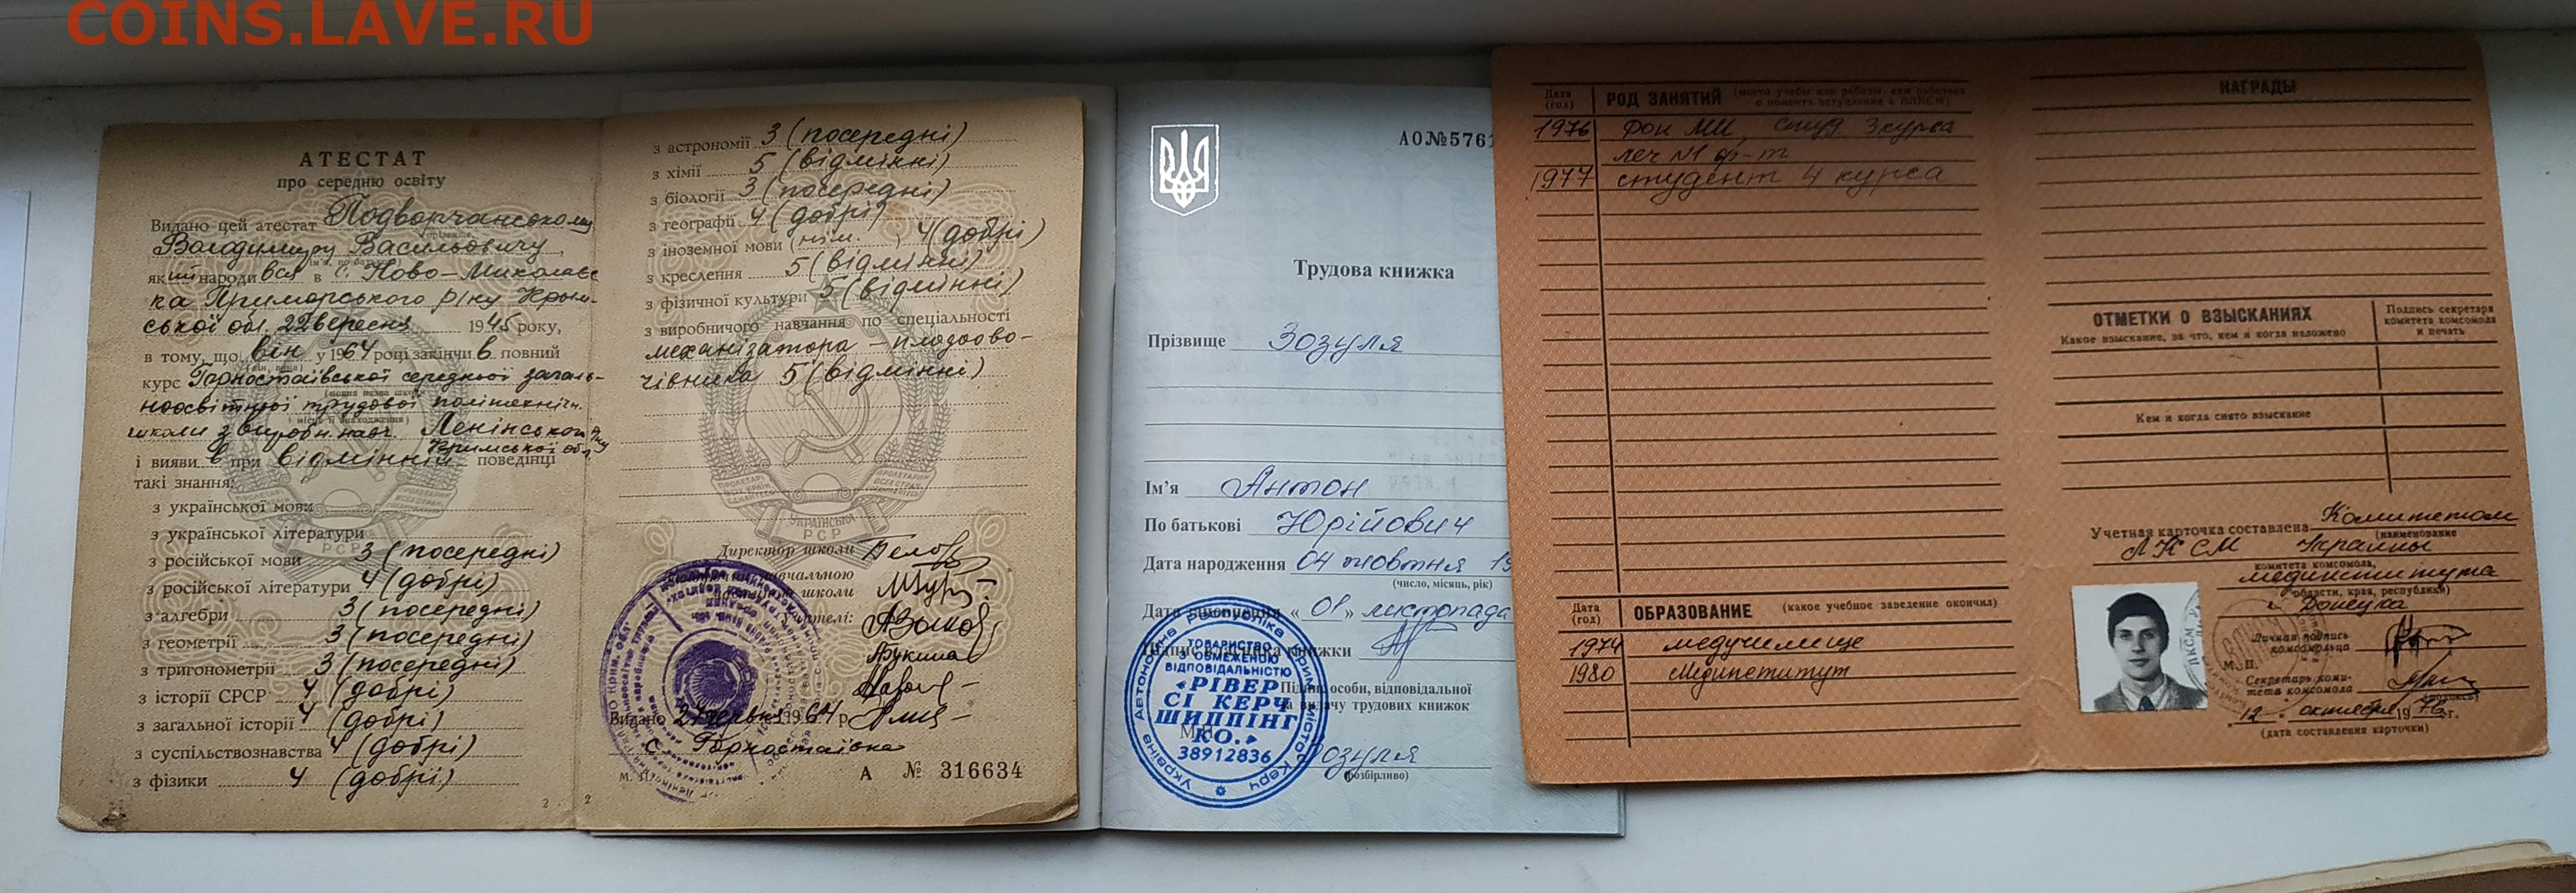 COINS.LAVE.RU
АТЕСТАТ
про середню освіту
Видано цей атестат Подворчанському
Володимиру Васильовичу
який народився в с. Ново-Миколаєв
ка Приморського р/ну Крым-
ської обл. 22 вересня 1945 року,
в тому, що він у 1964 році закінчив повний
курс Горностаївської середньої загаль-
ноосвітньої трудової політехнічн.
школи з виробн. навч. Ленінського р/ну
Кримської обл.
і виявив при відмінній поведінці
такі знання:
з української мови
з української літератури
з російської мови 3 (посередні)
з російської літератури 4 (добрі)
з алгебри 3 (посередні)
з геометрії 3 (посередні)
з тригонометрії 3 (посередні)
з історії СРСР 4 (добрі)
з загальної історії 4 (добрі)
з суспільствознавства 4 (добрі)
з фізики 4 (добрі)
2
з астрономії 3 (посередні)
з хімії 5 (відмінні)
з біології 3 (посередні)
з географії 4 (добрі)
з іноземної мови (нім.) 4 (добрі)
з креслення 5 (відмінні)
з фізичної культури 5 (відмінні)
з виробничого навчання по спеціальності
механізатора – плодоово-
чівника 5 (відмінні)
УКРАЇНСЬКА
РСР
Директор школи
школи
учителі:
Видано 21 червня 1964 р.
с. Горностаївка
М. П. А № 316634
2
АО№5761
Трудова книжка
Прізвище Зозуля
Ім’я Антон
По батькові Юрійович
Дата народження 04 жовтня 19
(число, місяць, рік)
Дата заповнення «01» листопада
Підпис власника книжки
Підпис особи, відповідальної
за видачу трудових книжок
М.П.
Зозуля
(розбірливо)
Україна Автономна Республіка Крим місто Керч
ТОВАРИСТВО
З ОБМЕЖЕНОЮ
ВІДПОВІДАЛЬНІСТЮ
«РІВЕР
СІ КЕРЧ
ШИППІНГ
КО.»
38912836
Дата
(год)
РОД ЗАНЯТИЙ (место учебы или работы, кем работает
с момента вступления в ВЛКСМ)
1976 Дон МИ, студ 3 курса
леч №1 ф-т
1977 студент 4 курса
Дата
(год)
ОБРАЗОВАНИЕ (какое учебное заведение окончил)
1974 медучилище
1980 Мединститут
НАГРАДЫ
ОТМЕТКИ О ВЗЫСКАНИЯХ
Какое взыскание, за что, кем и когда наложено
Подпись секретаря
комитета комсомола
и печать
Кем и когда снято взыскание
Учетная карточка составлена Комитетом
(наименование
ЛКСМ Украины
комитета комсомола,
мединститута
области, края, республики)
г. Донецка
Личная подпись
комсомольца
М. П.
Секретарь коми-
тета комсомола
12 октября 1976 г.
(дата составления карточки)